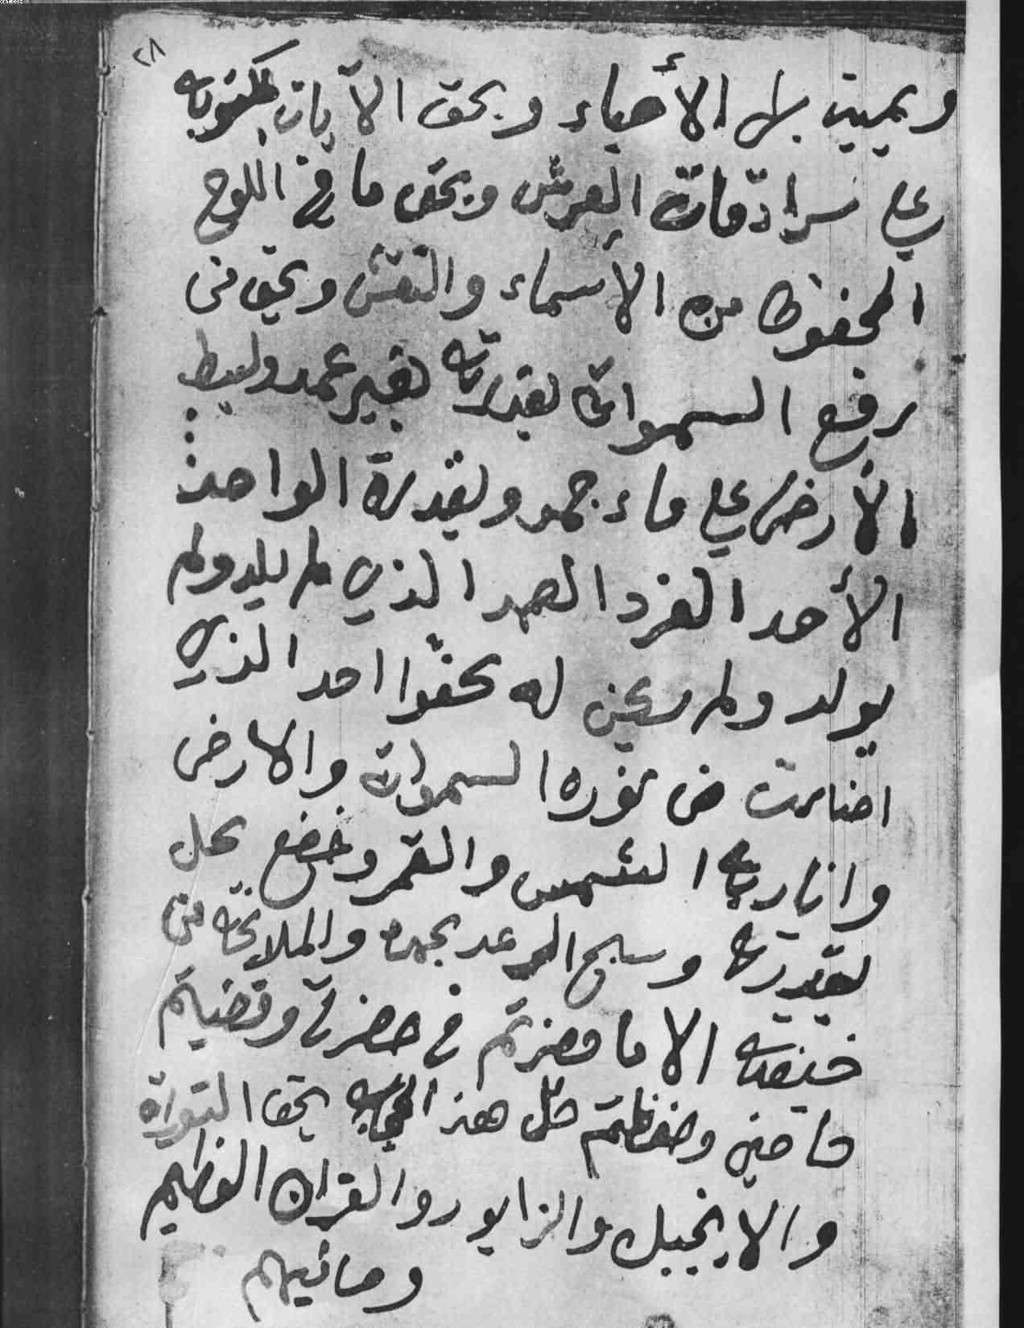 ٢٨
ويميت بها الأحياء وبحق الآيات المكتوبه
علي سرادقات العرش وبحق ما في اللوح
المحفوظ من الأسماء والنقش وبحق من
رفع السموات بقدرته بغير عمد وبسط
الأرض علي ماء جمد وبقدرة الواحد
الأحد الفرد الصمد الذي لم يلد ولم
يولد ولم يكن له كفوا احد الذي
اضاءت من نوره السموات والارض
وانار به الشمس والقمر وخضع كل
بقدرته وسبح الرعد بحمده والملائكه من
خيفته الا ما حضرتم في حضرتي وقضيتم
حاجتي وحفظتم حامل هذا الحجاب بحق التوراة
والانجيل والزابور والقران العظيم
وما فيهم